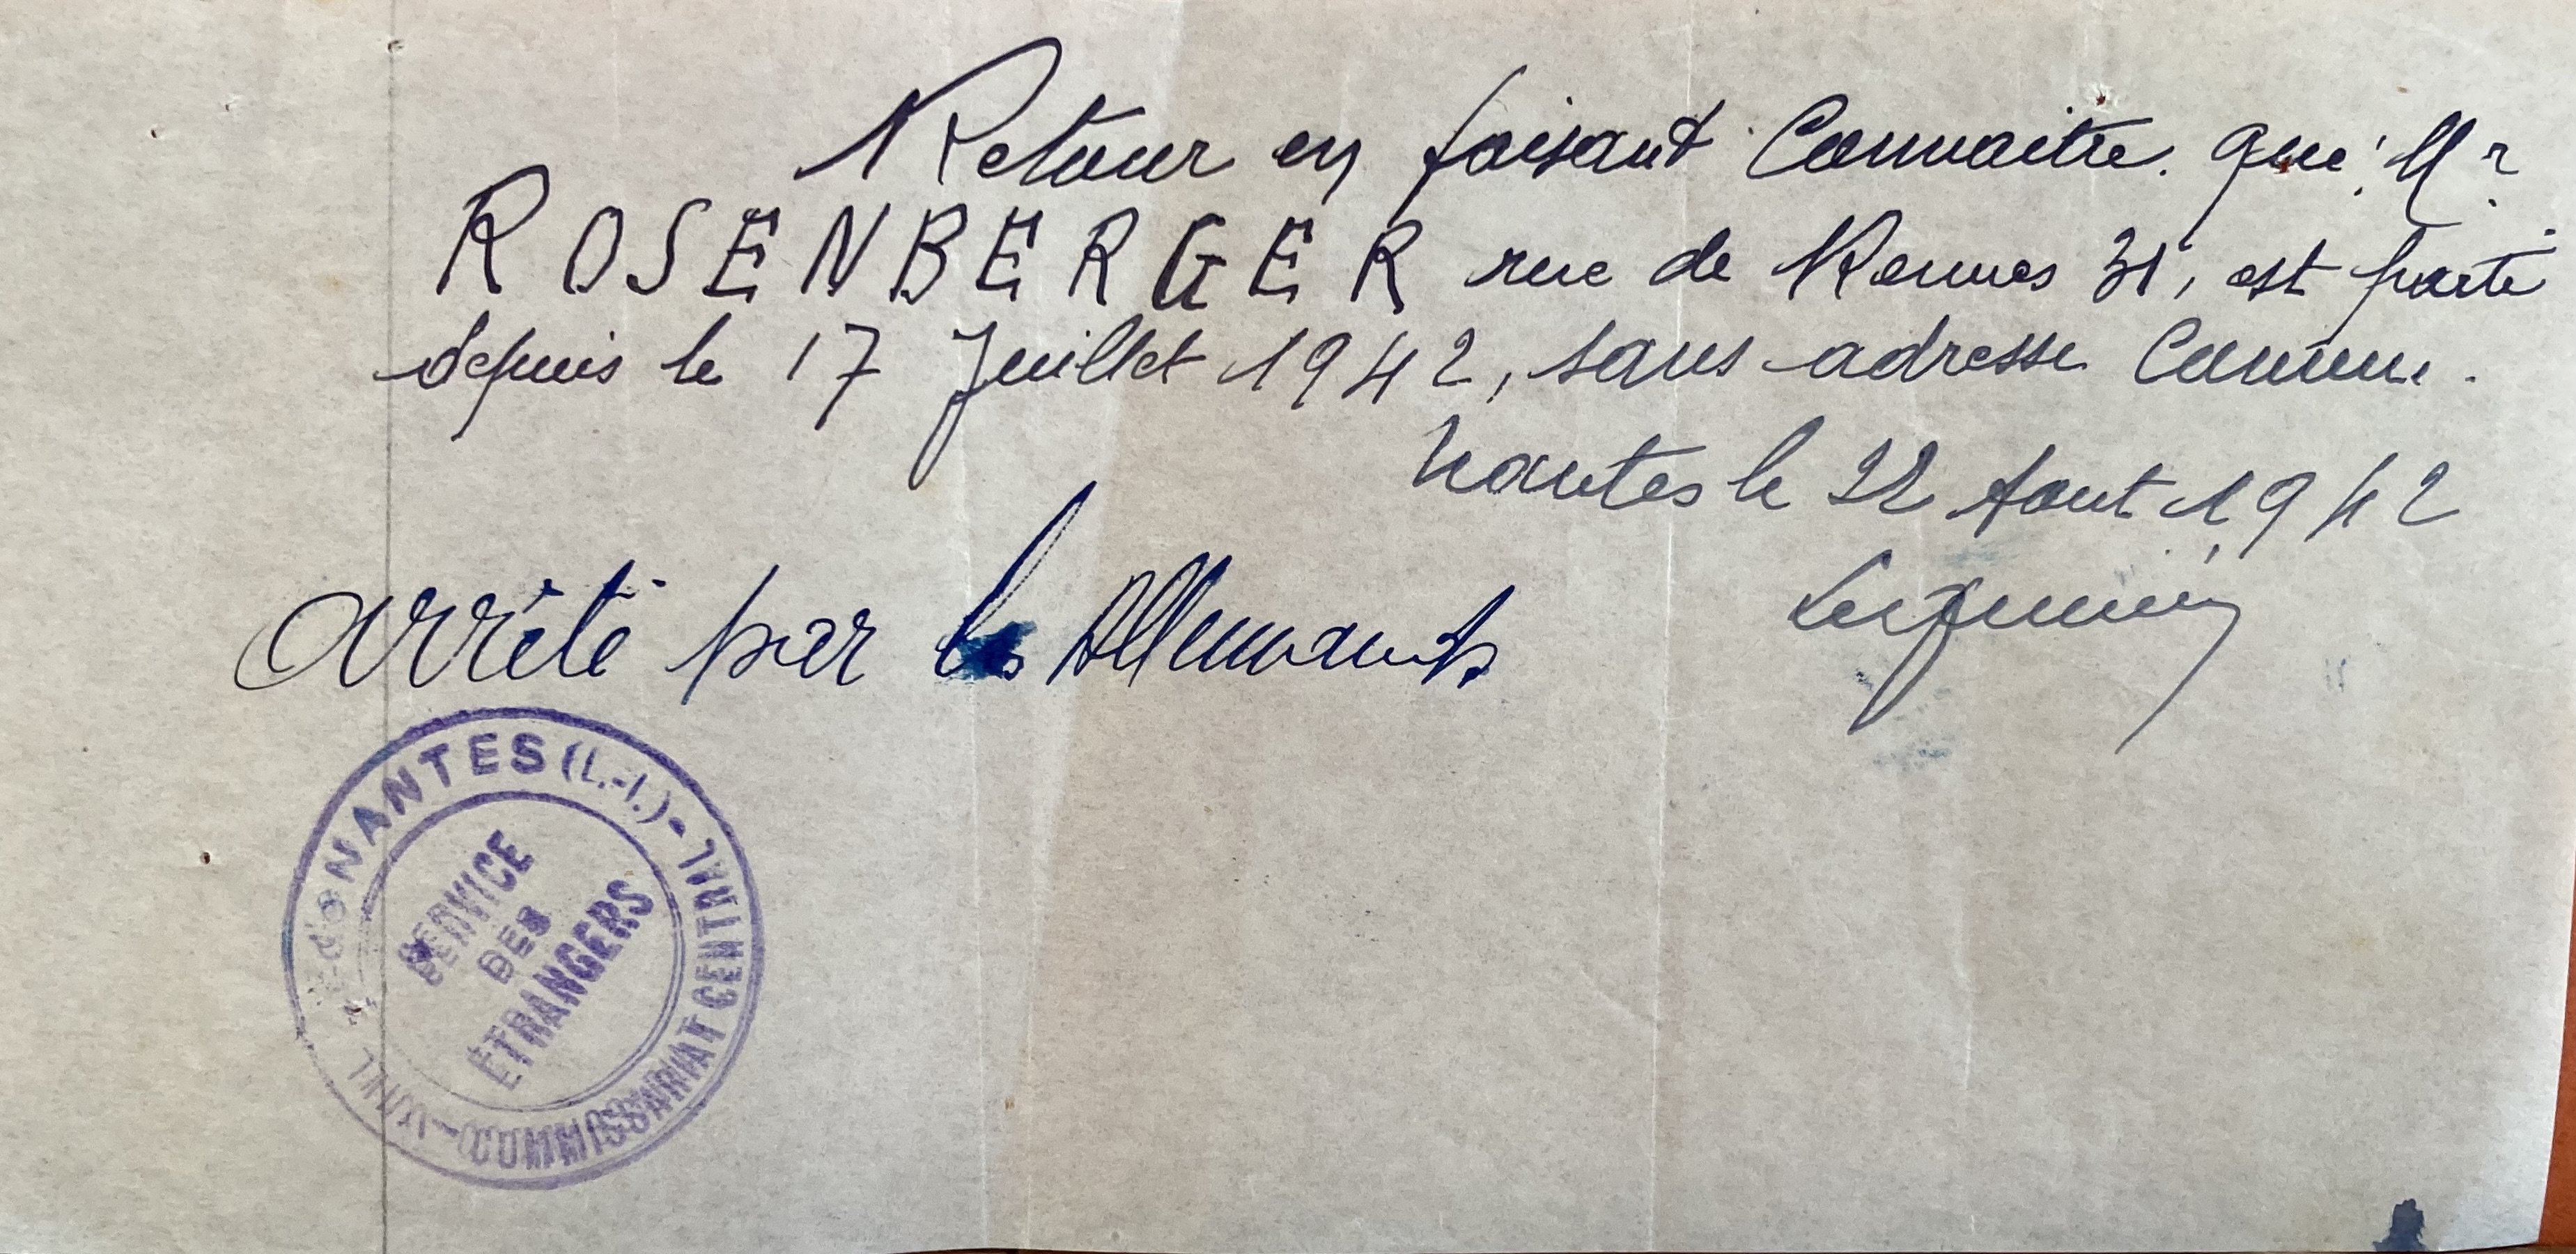 Retour en faisant Connaitre. que Mr
ROSENBERGER rue de Rennes 31, est parti
depuis le 17 Juillet 1942, sans adresse Connue.
Nantes le 22 Aout 1942
arrêté par les Allemands
NANTES (L.-I.) • COMMISSARIAT CENTRAL
SERVICE
DES
ÉTRANGERS